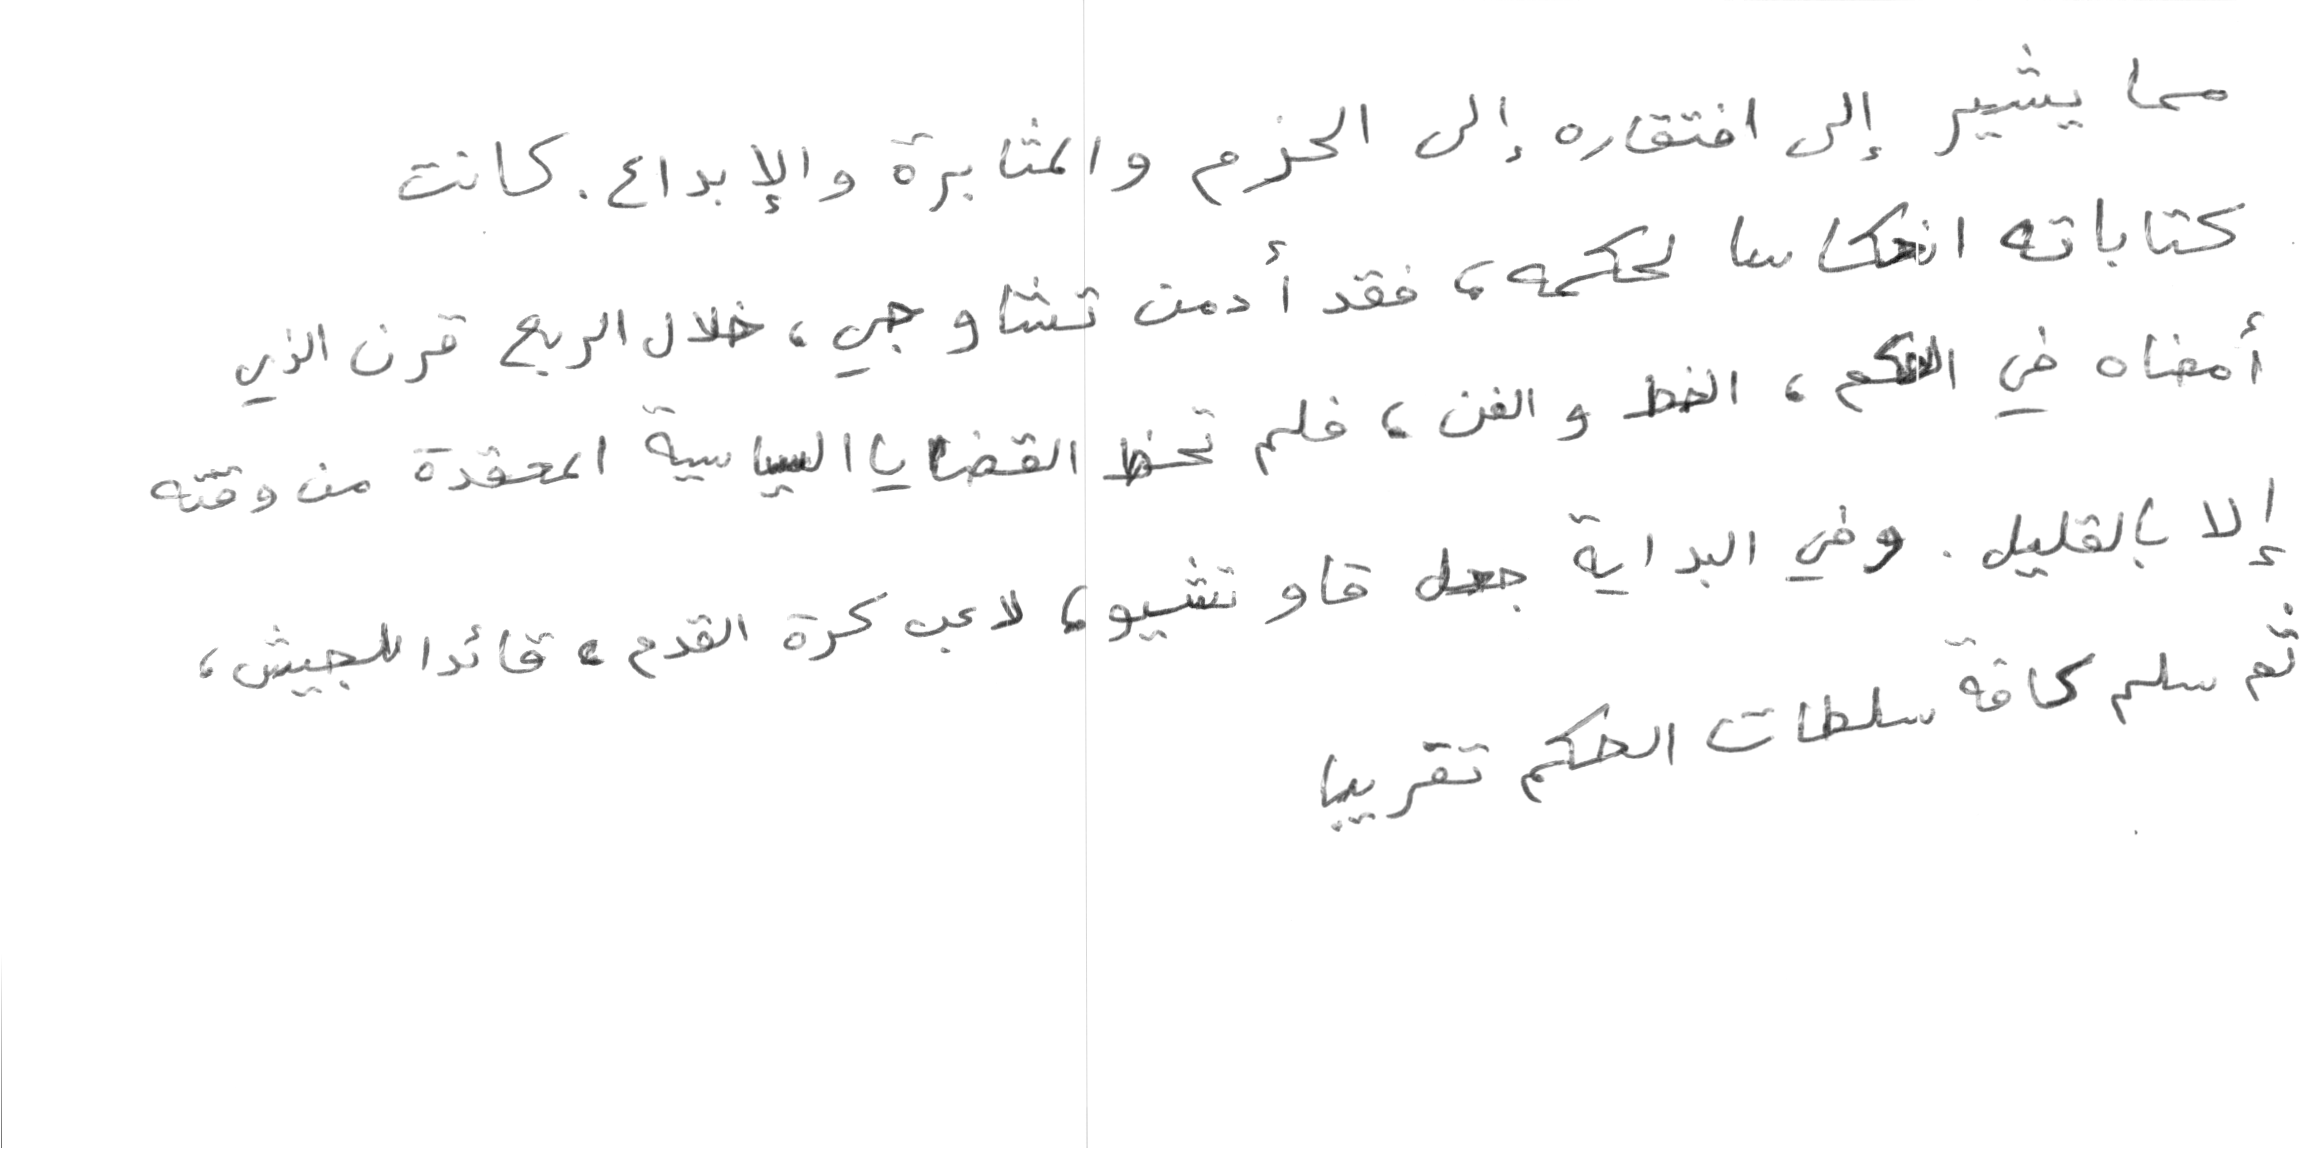 مما يشير إلى افتقاره إلى الحزم والمثابرة والإبداع. كانت
كتاباته انعكاسا لحكمه، فقد أدمن تشاو جي، خلال الربع قرن الذي
أمضاه في الحكم، الخط والفن، فلم تحظ القضايا السياسية المعقدة من وقته
إلا بالقليل. وفي البداية جعل قاو تشيو، لاعب كرة القدم، قائدا للجيش،
ثم سلم كافة سلطات الحكم تقريبا